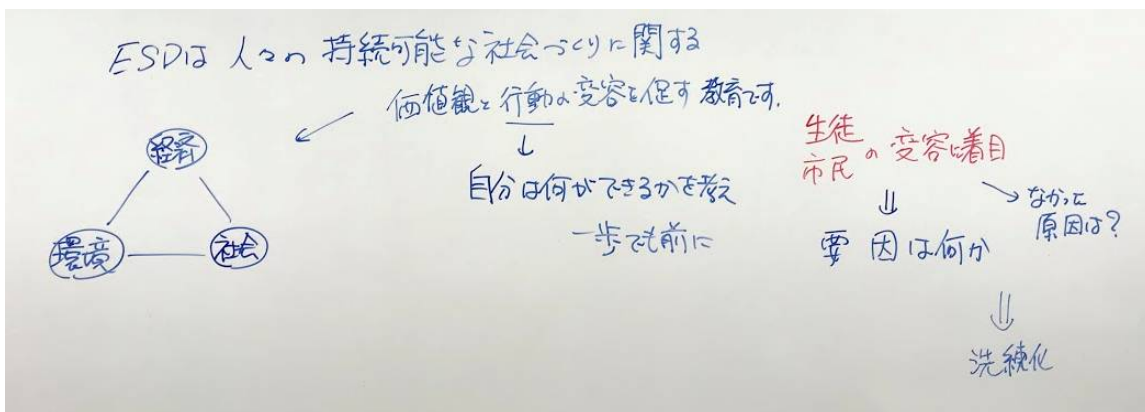 ESDは 人々の 持続可能な社会づくりに関する
価値観と行動の変容を促す教育です.
↓
自分は何ができるかを考え
一歩でも前に
経済
環境
社会
生徒
市民
の変容に着目
⇓
要因は何か
→ なかった
原因は?
⇓
洗練化